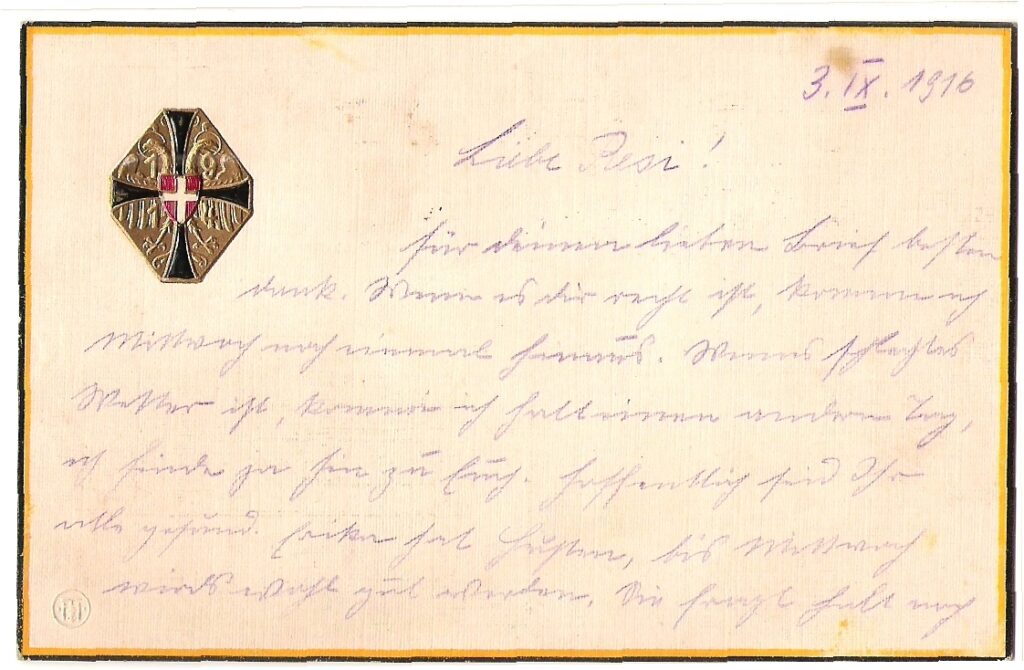 3. IX. 1916
Liebe Resi!
für deinen lieben Brief besten
dank. Wenn es dir recht ist, komme ich
Mittwoch noch einmal hinaus. Wenns schlechtes
Wetter ist, komme ich halt einen andern Tag,
ich finde ja hin zu Euch. Hoffentlich seid Ihr
alle gesund. Erika hat Husten, bis Mittwoch
wirds wohl gut werden. Sie fragt halt noch
1914